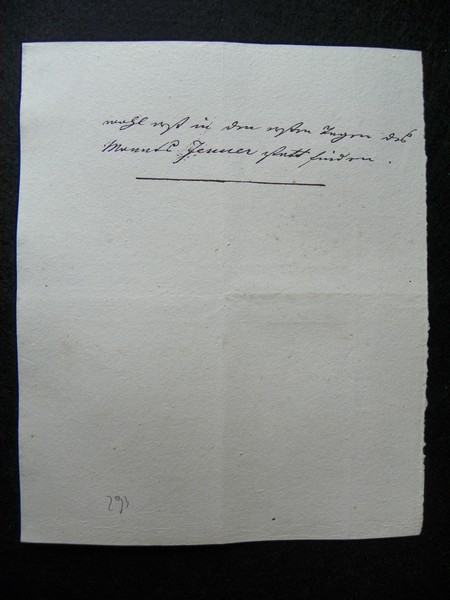 wohl erst in den ersten Tagen des
Monats Jenner statt finden.
293